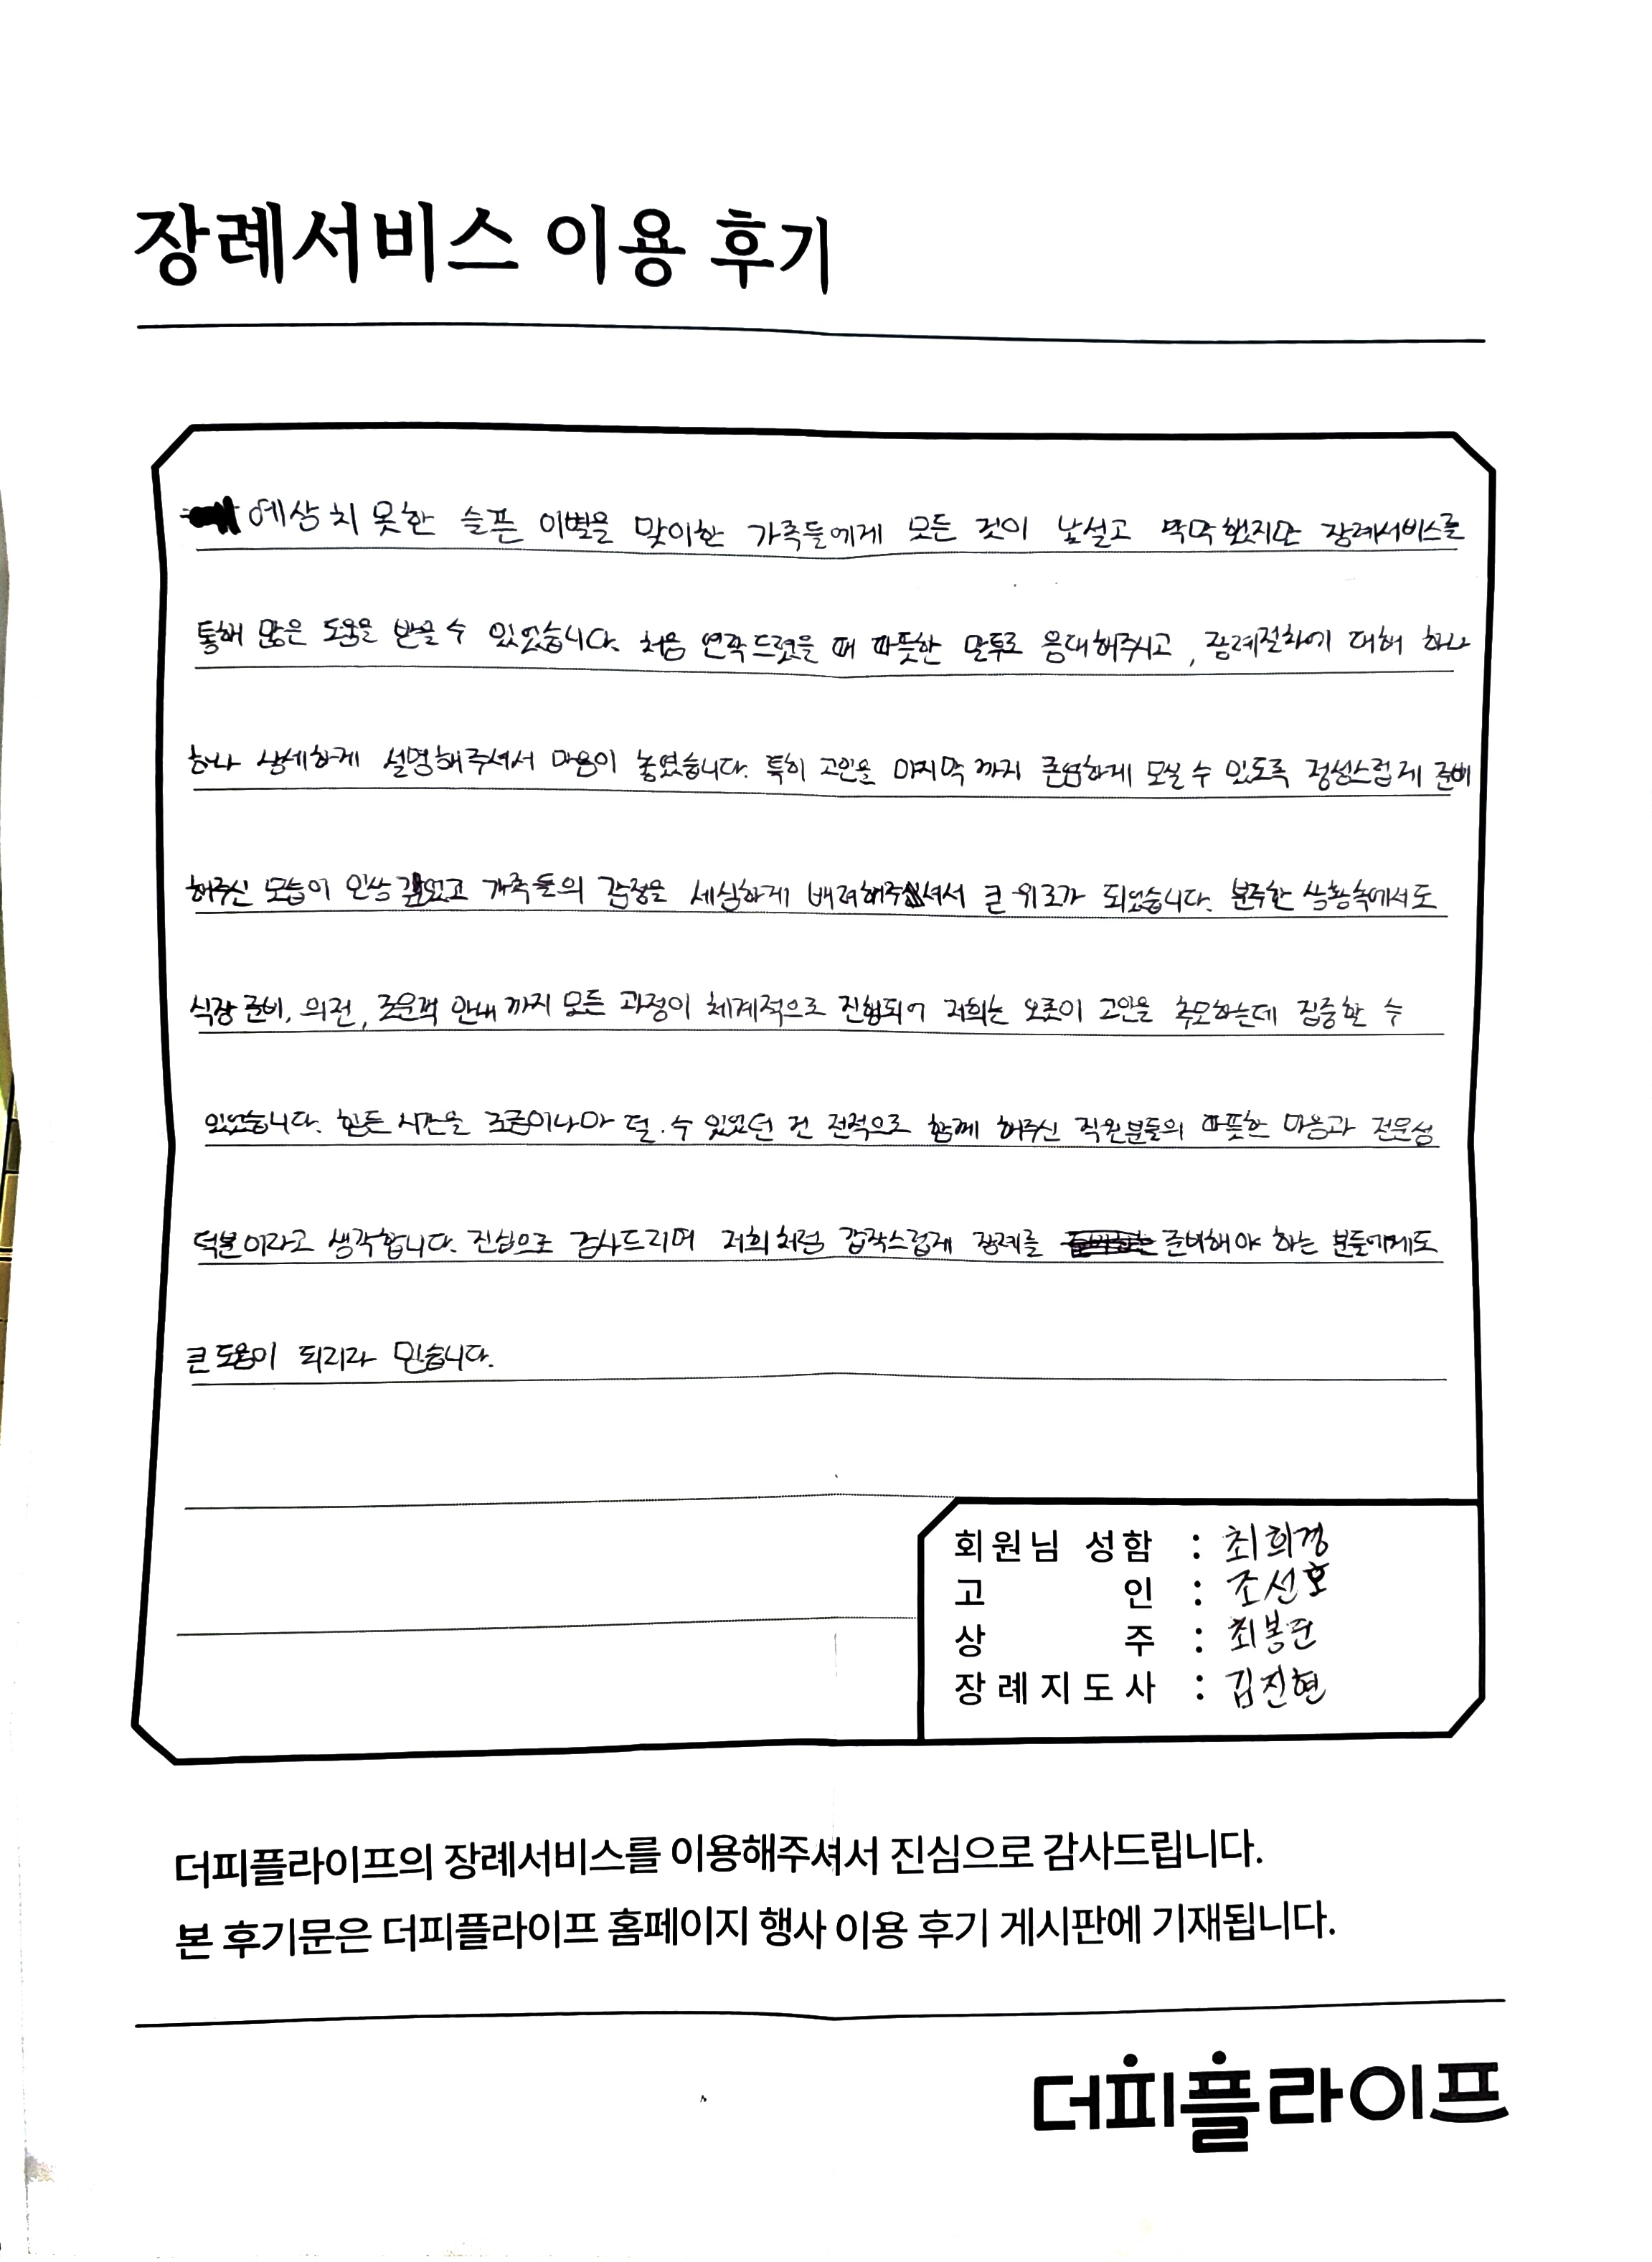 장례서비스 이용 후기
예상치 못한 슬픈 이별을 맞이한 가족들에게 모든 것이 낯설고 막막했지만 장례서비스를
통해 많은 도움을 받을 수 있었습니다. 처음 연락드렸을 때 따뜻한 말투로 응대해주시고, 장례절차에 대해 하나
하나 상세하게 설명해주셔서 마음이 놓였습니다. 특히 고인을 마지막까지 존엄하게 모실 수 있도록 정성스럽게 준비
해주신 모습이 인상 깊었고 가족들의 감정을 세심하게 배려해주셔서 큰 위로가 되었습니다. 분주한 상황속에서도
식장 준비, 의전, 조문객 안내까지 모든 과정이 체계적으로 진행되어 저희는 오롯이 고인을 추모하는데 집중할 수
있었습니다. 힘든 시간을 조금이나마 덜 수 있었던 건 전적으로 함께 해주신 직원분들의 따뜻한 마음과 전문성
덕분이라고 생각합니다. 진심으로 감사드리며 저희처럼 갑작스럽게 장례를 준비해야 하는 분들에게도
큰 도움이 되리라 믿습니다.
회원님 성함 : 최희경
고 인 : 조선호
상 주 : 최봉단
장례지도사 : 김진현
더피플라이프의 장례서비스를 이용해주셔서 진심으로 감사드립니다.
본 후기문은 더피플라이프 홈페이지 행사 이용 후기 게시판에 기재됩니다.
더피플라이프